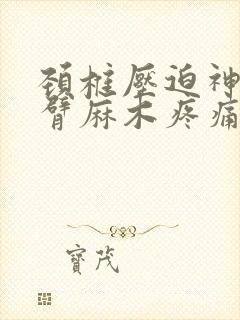 頚椎壓迫神
臂麻木疼痛
寶茂